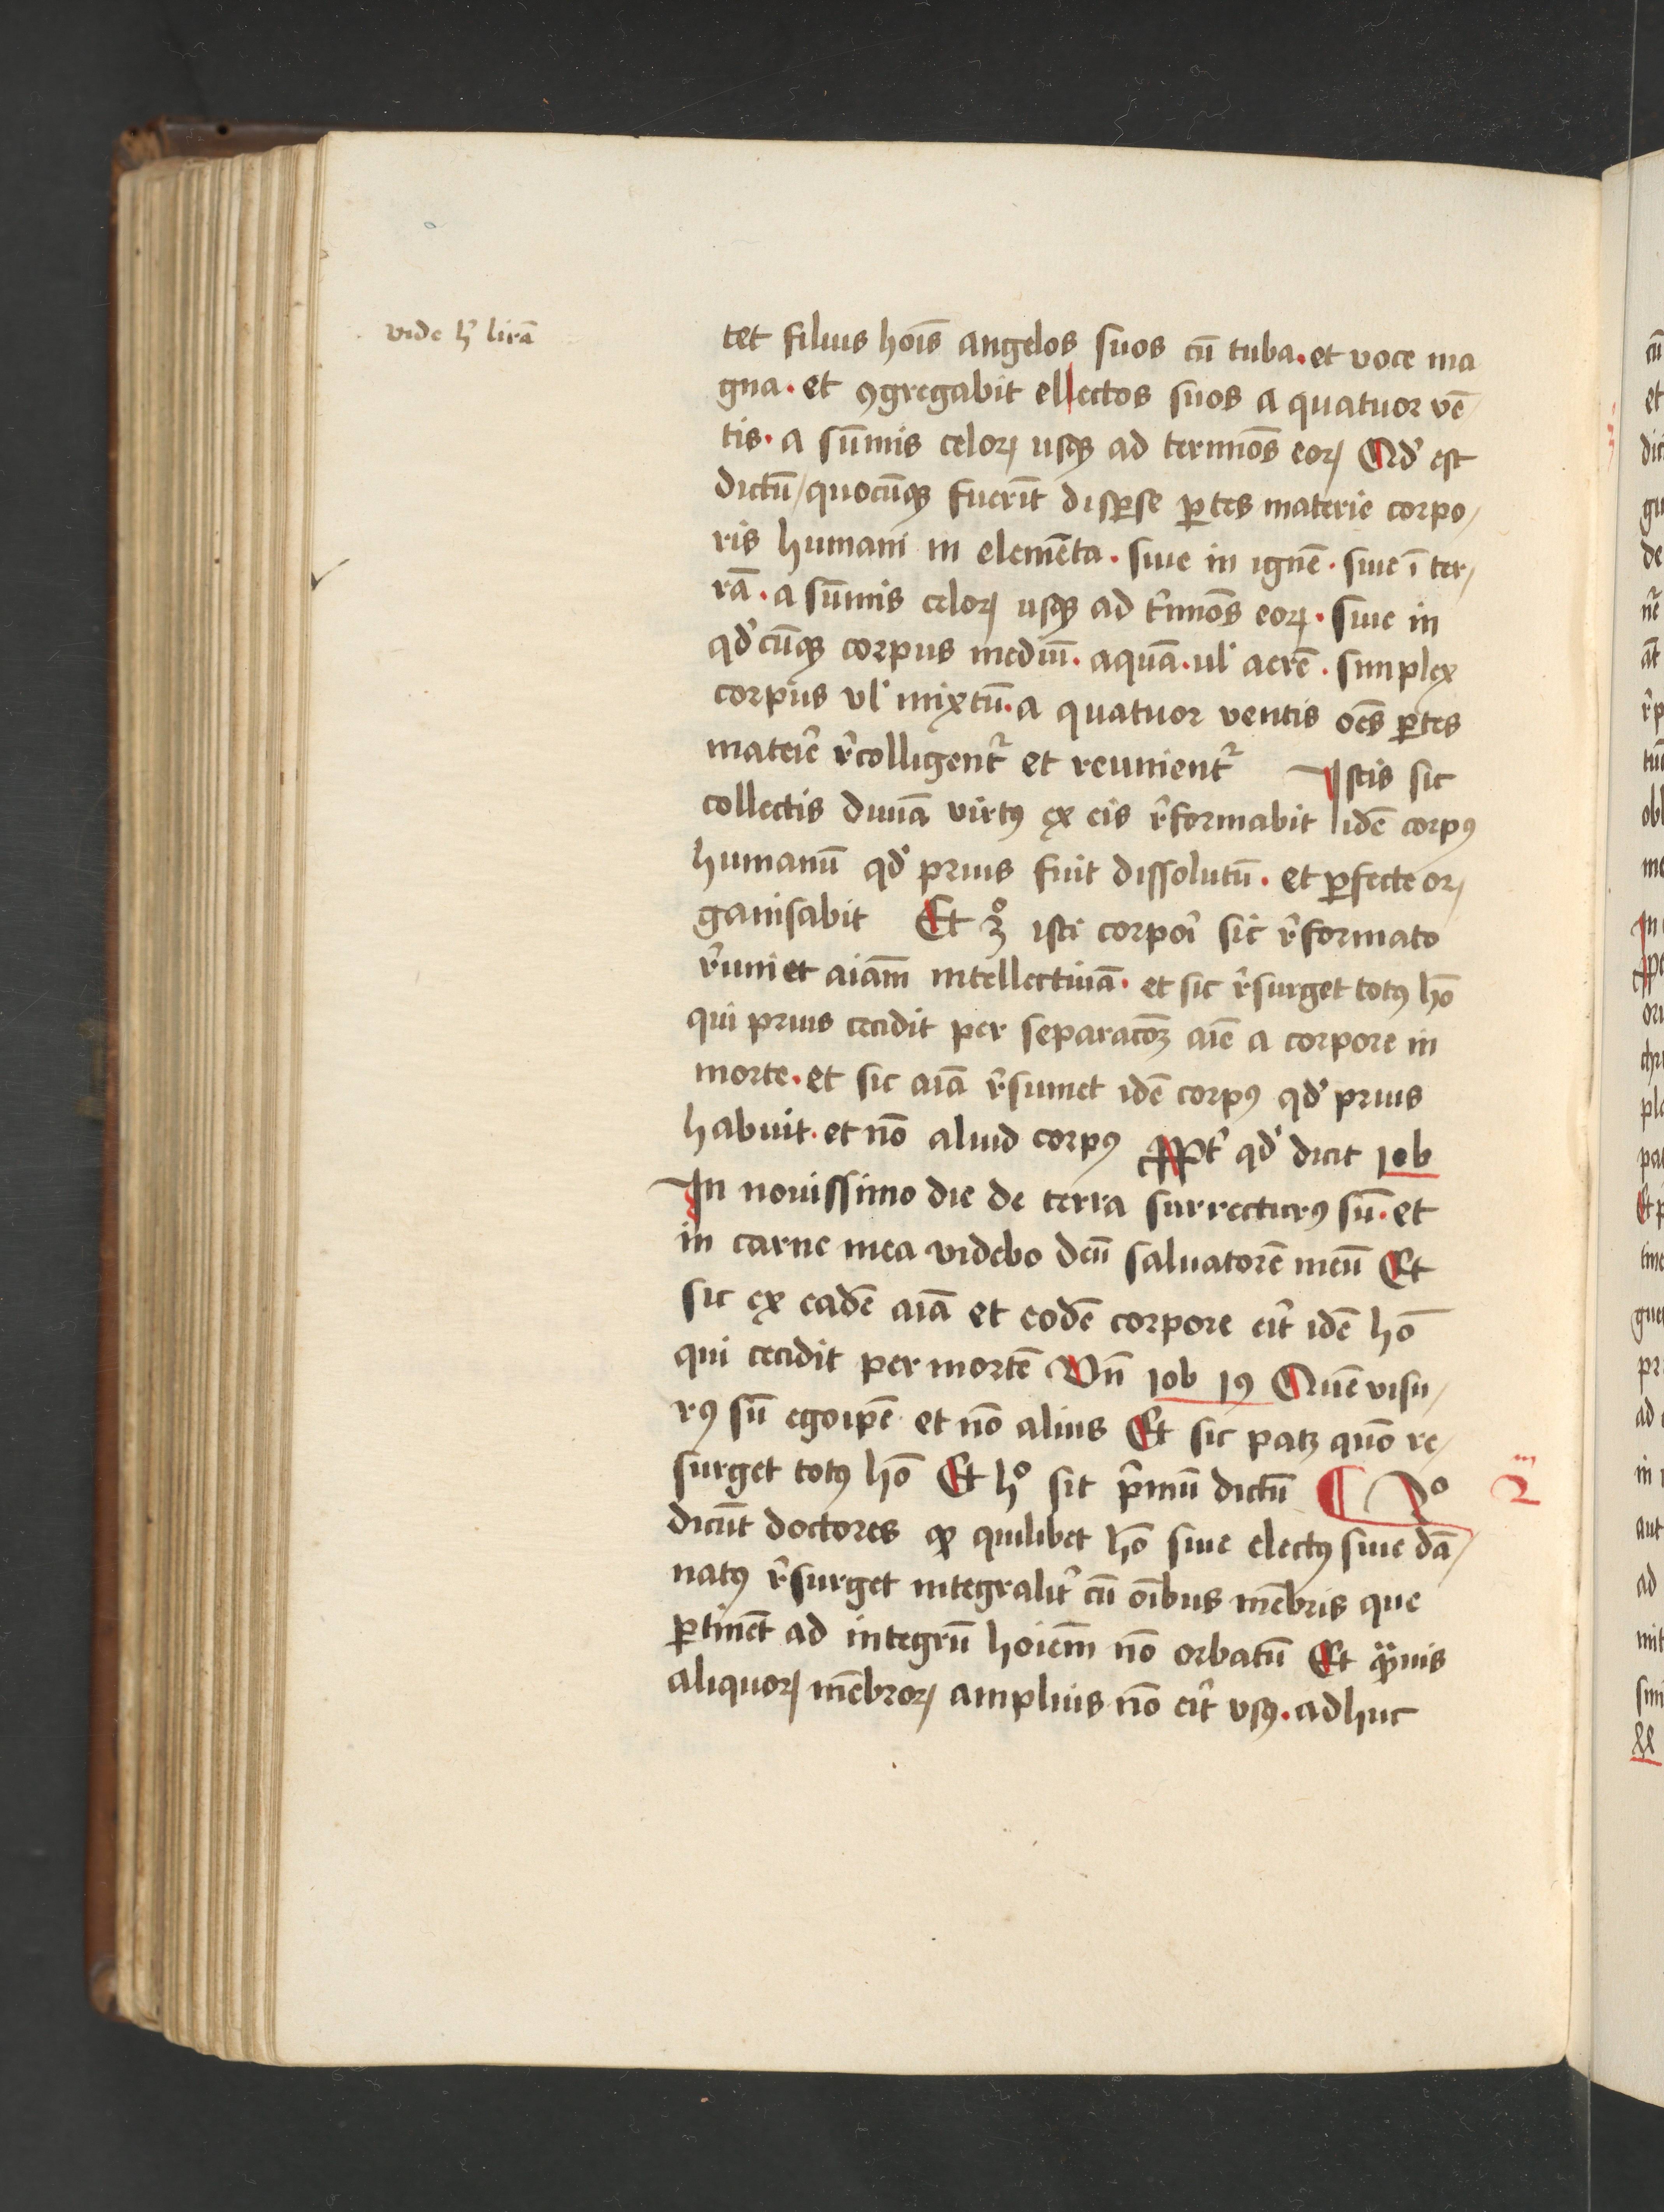 vide hͥ lirā
tet filius hoīs angelos suos cū tuba. et voce ma
gna. et ꝯgregabit ellectos suos a quatuor vē/
tis. a sūmis celoꝝ usqꝫ ad terminōs eoꝝ Qd' est
dictū/quocūqꝫ fuerīt disꝑse ꝑtes materie corpo/
ris humani in elemēta. siue in ignē. siue ī ter/
rā. a sūmis celoꝝ usqꝫ ad t'minōs eoꝝ. siue in
qd'cūqꝫ corpus mediū. aquā. ul' aerē. simplex
corpus vl' mixtū. a quatuor ventis oēs ꝑtes
mateīe r'colligent᷑ et reunient᷑ Istis sic
collectis diuīa virtꝰ ex eis r'formabit idē corpꝰ
humanū qd' prius fuit dissolutū. et ꝑfecte or/
ganisabit Et 3° isti corpoī sic r'formato
r'uniet aiam̄ intellectiuā. et sic r'surget totꝰ hō
qui prius cecidit per separacōꝫ aīe a corpore in
morte. et sic aīa r'sumet idē corpꝰ qd' prius
habuit. et nō aliud corpꝰ Ppt' qd' dicit iob
In nouissimo die de terra surrecturꝰ sū. et
in carne mea videbo deū saluatorē meū Et
sic ex eadē aīa et eodē corpore eit' idē hō
qui cecidit per mortē Vn̄ iob 19 Quē visu/
rꝰ sū egoipē et nō alius Et sic patꝫ quō re/
surget totꝰ hō Et h° sit p'mū dictū ¶ 2°
2m
dicūt doctores ꝙ quilibet hō siue electꝰ siue dā/
natꝰ r'surget integralit' cū oībus mēbris que
ꝑtinēt ad integrū hoiem̄ nō orbatū Et qᷓuis
aliquoꝝ mēbroꝝ amplius nō eit' vsꝰ. adhuc